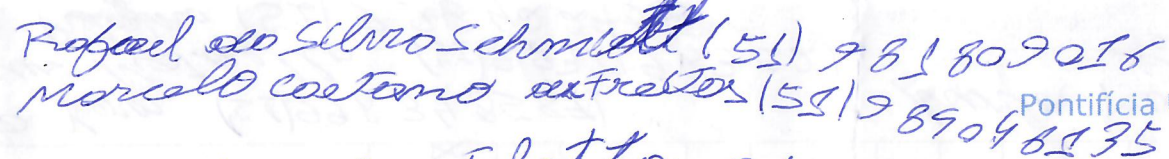 Rafael da Silva Schmidt (51) 981809016
Marcelo Caetano de Freitas (51) 989048135
Pontifícia